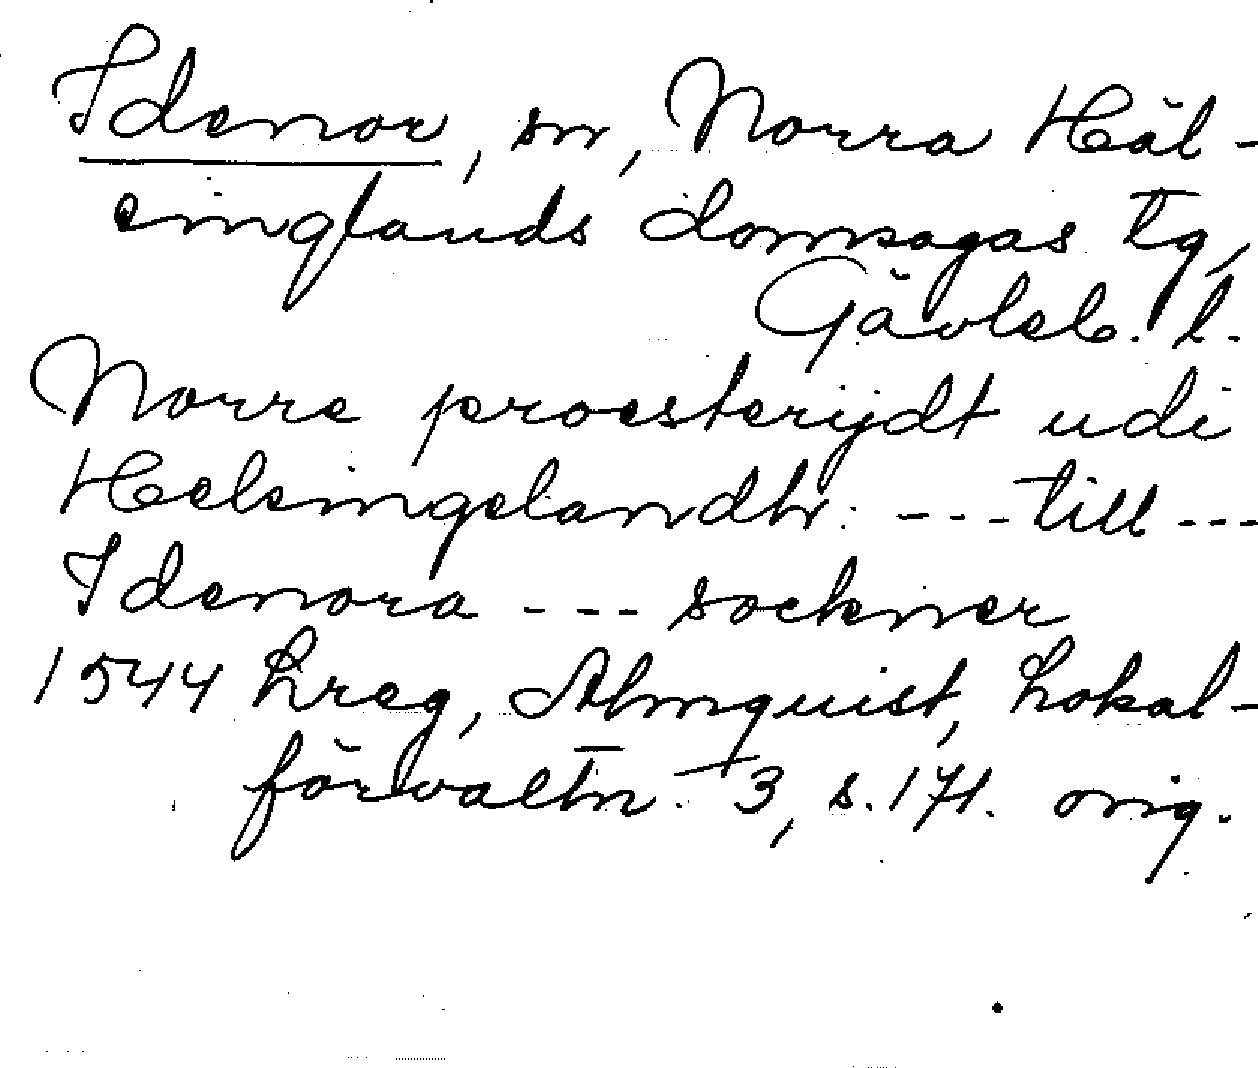 Idenor, sn, Norra Häl-
singlands domsagas tg,
Gävleb. l.
Norre proesterijdt udi
Helsingelandh: --- till ---
Idenora --- sockner
1544 Lreg, Almquist, Lokal-
förvaltn. 3, s. 171. orig.